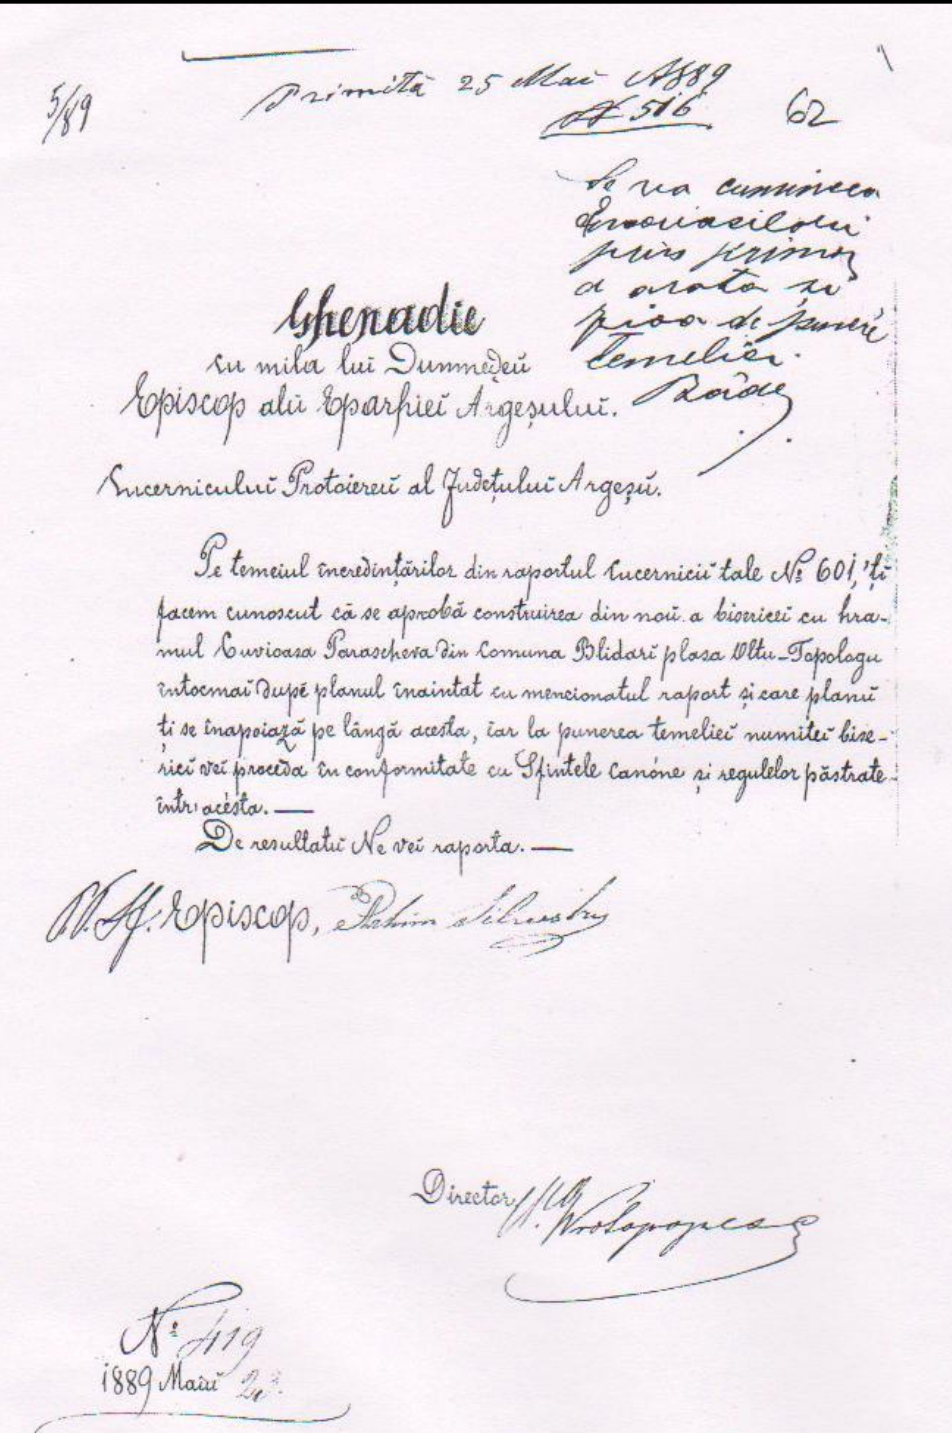 5/89
Primită 25 Mai 1889
N 516
62
Se va comunica
Enoriașiloru
prin primar
a arăta și
ziua de punere
temeliei.
Ghenadie
cu mila lui Dumnedeu
Episcop alŭ Eparhieĭ Argeșuluĭ.
Cucerniculuĭ Protoiereŭ al Județuluĭ Argeșŭ.
Pe temeiul încredințărilor din raportul Cucerniciĭ tale Nº 601, 'țĭ
facem cunoscut că se aprobă construirea din noŭ a bisericeĭ cu hra-
mul Cuvioasa Parascheva din Comuna Blidarĭ plasa Oltu-Topologu
întocmaĭ dupĕ planul înaintat cu mencionatul raport și care planŭ
ți se înapoiază pe lângă acesta, iar la punerea temelieĭ numiteĭ bise-
ricĭ veĭ proceda în conformitate cu Sfintele Canóne și regulelor păstrate
întru acésta. —
De resultatŭ Ne veĭ raporta. —
Episcop,
Director
Protopopescu
Nº 419
1889 Maiŭ